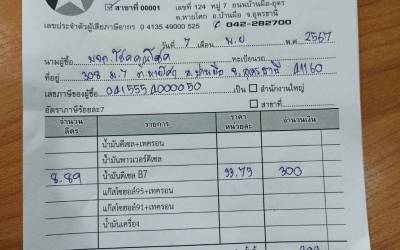 ☑ สาขาที่ 00001 เลขที่ 124 หมู่ 7 ถนนบ้านผือ-อุดร
ต.หายโศก อ.บ้านผือ จ.อุดรธานี
เลขประจำตัวผู้เสียภาษีอากร 0 4135 49000 525 042-282700
วันที่ 7 เดือน พ.ย พ.ศ. 2567
นามผู้ซื้อ หจก. ทะเบียนรถ
ที่อยู่ 308 ม.7 ต.หายโศก อ.บ้านผือ จ.อุดรธานี 41160
เลขภาษีของผู้ซื้อ เป็น ☑ สำนักงานใหญ่
อัตราภาษีร้อยละ7 ☐ สาขาที่
จำนวนลิตร รายการ ราคาหน่วยละ จำนวนเงิน
น้ำมันดีเซล+เทครอน
น้ำมันพาวเวอร์ดีเซล
8.89 น้ำมันดีเซล B7 33.75 300
แก๊สโซฮอล์95+เทครอน
แก๊สโซฮอล์91+เทครอน
น้ำมันเครื่อง